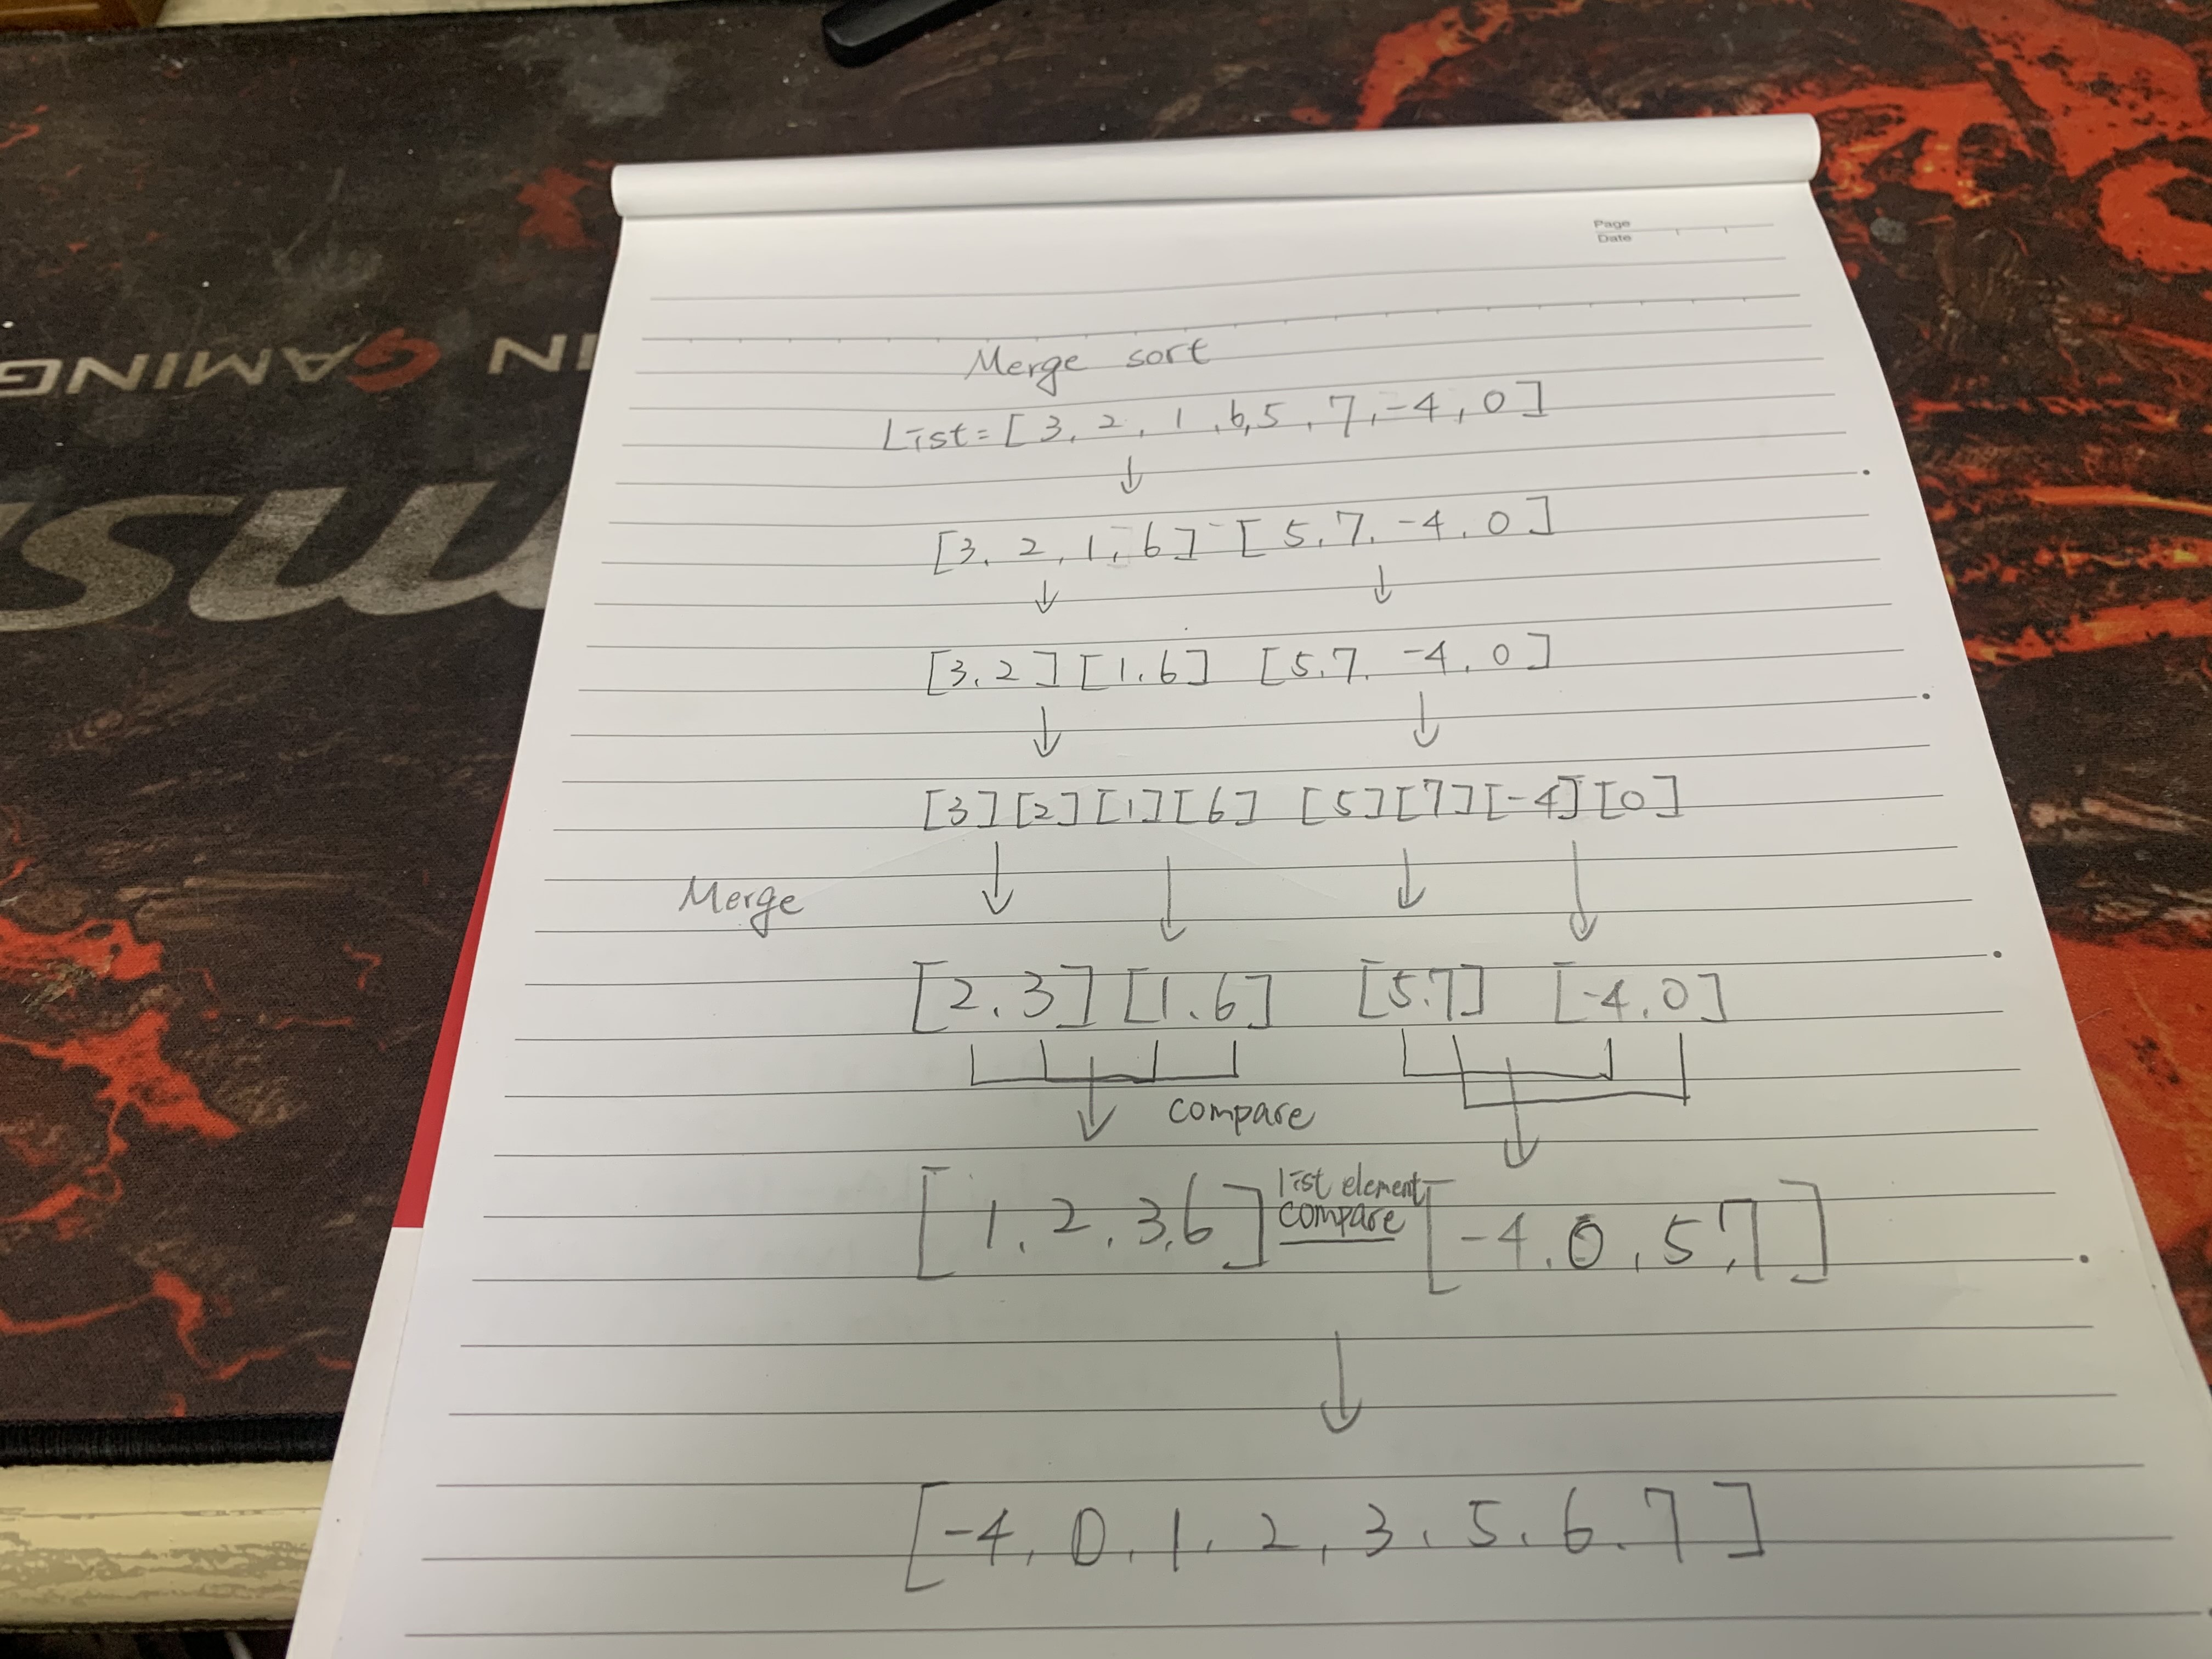 Page
Date
Merge sort
List = [3, 2, 1, 6, 5, 7, -4, 0]
[3, 2, 1, 6] [5, 7, -4, 0]
[3, 2] [1, 6] [5, 7, -4, 0]
[3] [2] [1] [6] [5] [7] [-4] [0]
Merge
[2, 3] [1, 6] [5, 7] [-4, 0]
compare
list element
[1, 2, 3, 6] compare [-4, 0, 5, 7]
[-4, 0, 1, 2, 3, 5, 6, 7]
GAMING
IN